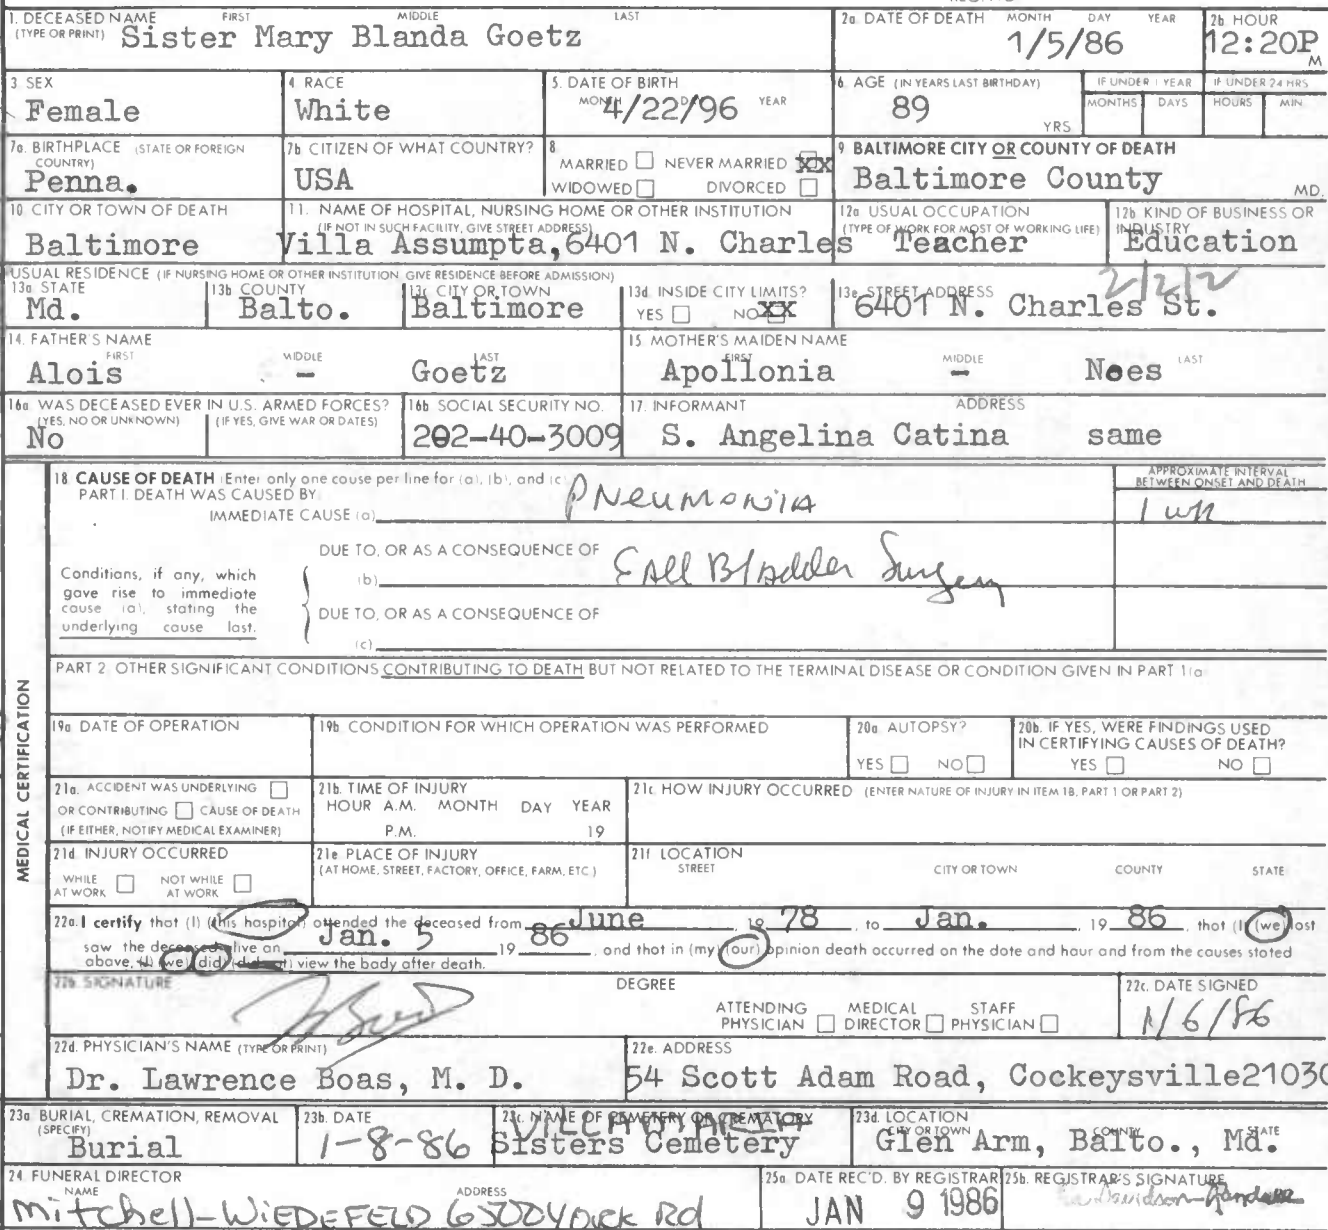 1. DECEASED NAME FIRST MIDDLE LAST
(TYPE OR PRINT) Sister Mary Blanda Goetz
2a DATE OF DEATH MONTH DAY YEAR
1/5/86
2b. HOUR
12:20P M
3 SEX
Female
4 RACE
White
5. DATE OF BIRTH
MONTH DAY YEAR
4/22/96
6. AGE (IN YEARS LAST BIRTHDAY)
89 YRS.
IF UNDER 1 YEAR
MONTHS DAYS
IF UNDER 24 HRS
HOURS MIN
7a. BIRTHPLACE (STATE OR FOREIGN COUNTRY)
Penna.
7b CITIZEN OF WHAT COUNTRY?
USA
8
MARRIED NEVER MARRIED XX
WIDOWED DIVORCED
9 BALTIMORE CITY OR COUNTY OF DEATH
Baltimore County MD.
10 CITY OR TOWN OF DEATH
Baltimore
11. NAME OF HOSPITAL, NURSING HOME OR OTHER INSTITUTION
(IF NOT IN SUCH FACILITY, GIVE STREET ADDRESS)
Villa Assumpta, 6401 N. Charles
12a USUAL OCCUPATION
(TYPE OF WORK FOR MOST OF WORKING LIFE)
Teacher
12b KIND OF BUSINESS OR INDUSTRY
Education
USUAL RESIDENCE (IF NURSING HOME OR OTHER INSTITUTION GIVE RESIDENCE BEFORE ADMISSION)
13a STATE
Md.
13b COUNTY
Balto.
13c CITY OR TOWN
Baltimore
13d. INSIDE CITY LIMITS?
YES NO XX
13e STREET ADDRESS
6401 N. Charles St.
2/2/2
14. FATHER'S NAME
FIRST MIDDLE LAST
Alois - Goetz
15. MOTHER'S MAIDEN NAME
FIRST MIDDLE LAST
Apollonia - Nees
16a WAS DECEASED EVER IN U.S. ARMED FORCES?
(YES, NO OR UNKNOWN) (IF YES, GIVE WAR OR DATES)
No
16b SOCIAL SECURITY NO.
202-40-3009
17. INFORMANT ADDRESS
S. Angelina Catina same
MEDICAL CERTIFICATION
18 CAUSE OF DEATH (Enter only one cause per line for (a), (b), and (c)
PART I. DEATH WAS CAUSED BY:
IMMEDIATE CAUSE (a) Pneumonia
APPROXIMATE INTERVAL BETWEEN ONSET AND DEATH
1 wk
Conditions, if any, which gave rise to immediate cause (a), stating the underlying cause last.
DUE TO, OR AS A CONSEQUENCE OF
(b) Gall Bladder Surgery
DUE TO, OR AS A CONSEQUENCE OF
(c)
PART 2 OTHER SIGNIFICANT CONDITIONS CONTRIBUTING TO DEATH BUT NOT RELATED TO THE TERMINAL DISEASE OR CONDITION GIVEN IN PART 1(a)
19a DATE OF OPERATION
19b CONDITION FOR WHICH OPERATION WAS PERFORMED
20a AUTOPSY?
YES NO
20b. IF YES, WERE FINDINGS USED IN CERTIFYING CAUSES OF DEATH?
YES NO
21a. ACCIDENT WAS UNDERLYING
OR CONTRIBUTING CAUSE OF DEATH
(IF EITHER, NOTIFY MEDICAL EXAMINER)
21b. TIME OF INJURY
HOUR A.M. MONTH DAY YEAR
P.M. 19
21c. HOW INJURY OCCURRED (ENTER NATURE OF INJURY IN ITEM 18, PART 1 OR PART 2)
21d INJURY OCCURRED
WHILE AT WORK NOT WHILE AT WORK
21e PLACE OF INJURY
(AT HOME, STREET, FACTORY, OFFICE, FARM, ETC.)
21f LOCATION
STREET CITY OR TOWN COUNTY STATE
22a. I certify that (I) (this hospital) attended the deceased from June 19 78 to Jan. 19 86, that (I) (we) last
saw the deceased alive on Jan. 5 19 86, and that in (my) (our) opinion death occurred on the date and hour and from the causes stated
above, (I) (we) (did) (did not) view the body after death.
22b. SIGNATURE
DEGREE
ATTENDING PHYSICIAN MEDICAL DIRECTOR STAFF PHYSICIAN
22c. DATE SIGNED
1/6/86
22d. PHYSICIAN'S NAME (TYPE OR PRINT)
Dr. Lawrence Boas, M. D.
22e. ADDRESS
54 Scott Adam Road, Cockeysville21030
23a BURIAL, CREMATION, REMOVAL
(SPECIFY)
Burial
23b. DATE
1-8-86
23c. NAME OF CEMETERY OR CREMATORY
VILLA MARIA
Sisters Cemetery
23d. LOCATION
CITY OR TOWN COUNTY STATE
Glen Arm, Balto., Md.
24 FUNERAL DIRECTOR
NAME ADDRESS
Mitchell-WIEDEFELD 6500 YORK Rd
25a. DATE REC'D. BY REGISTRAR
JAN 9 1986
25b. REGISTRAR'S SIGNATURE
Davidson-Randall